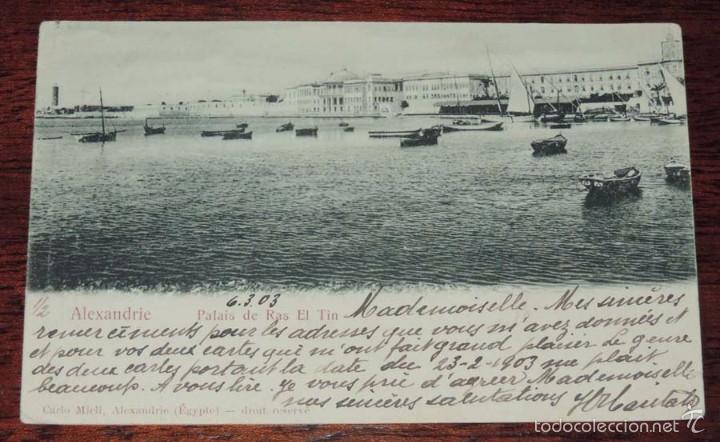 6.3.03
1/2 Alexandrie Palais de Ras El Tin Mademoiselle. Mes sincères
remerciements pour les adresses que vous m'avez données et
et pour vos deux cartes qui m'ont fait grand plaisir Le genre
des deux cartes portant la date du 23-2-1903 me plait
beaucoup. A vous lire. Je vous prie d'agreer Mademoiselle
mes sincères salutations
Carlo Mieli, Alexandrie (Égypte) — droit reservé
todocoleccion.net